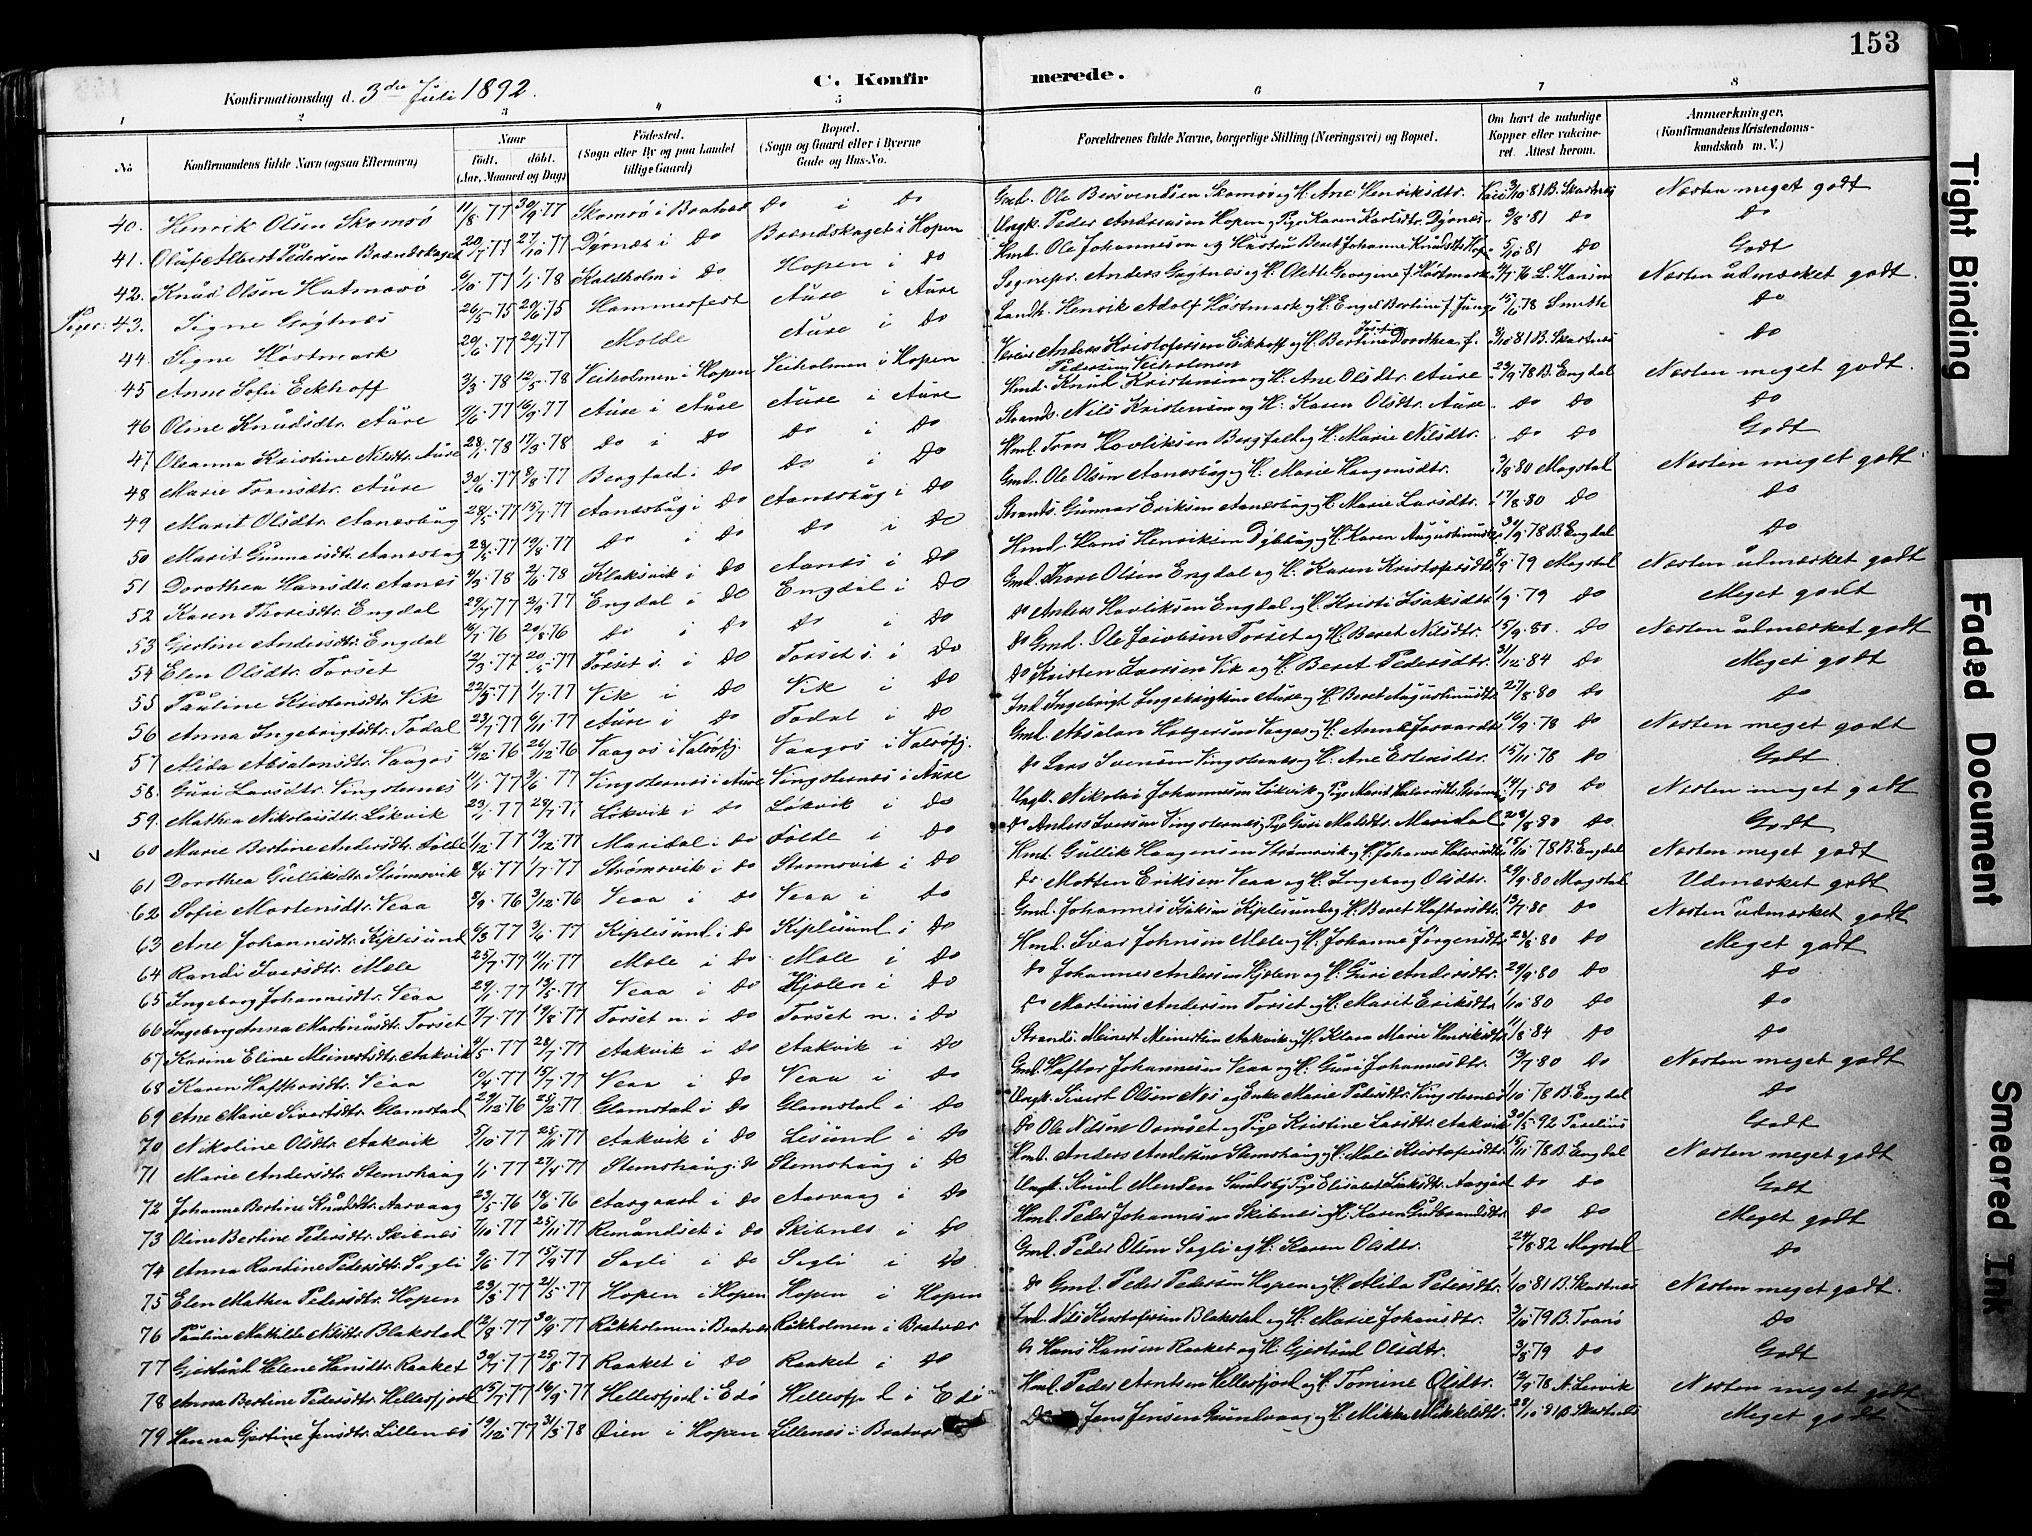 153
Konfirmationsdag d. 3die Juli 1892. C. Konfirmerede.
1 2 3 4 5 6 7 8
No Konfirmandens fulde Navn (ogsaa Efternavn) Naar Födt, döbt. (Aar, Maaned og Dag) Födested. (Sogn eller By og paa Landet tillige Gaard) Bopæl. (Sogn og Gaard eller i Byerne Gade og Hus-No. Forældrenes fulde Navne, borgerlige Stilling (Næringsvei) og Bopæl. Om havt de naturlige Kopper eller vaccineret. Attest herom. Anmærkninger, (Konfirmandens Kristendomskundskab m. V.)
40. Henrik Olsen Skomsö 11/8.77 30/9.77 Skomsö i Bratvær Do i Do Gmd. Ole Bersvendsen Skomsö og H. Ane Henriksdtr. Vacc 3/10.81 B. Skarsnes Næsten meget godt
41. Oluf Albert Pedersen Brændskaget 20/7.77 27/10.77 Dyrnæs i Do Brændskaget i Hopen Ungk. Peder Andreasen Hopen og Pige Karen Karlsdtr. Dyrnæs 3/8.81 Do Do
42. Knud Olsen Hatmosö 6/10.77 1/1.78 Kaldholm i Do Hopen i Do Hmd. Ole Johannesen og Hustru Beret Johanne Knudsdtr 5/10 81 Do Godt
Piger: 43. Signe Gagtnes 26/5.75 20/6.75 Hammerfest Aure i Aure Sognepr. Anders Gagtnes og H. Olette Georgine f. Hostmark 9/7.76 L. Hansen Næsten udmærket godt.
44 Signe Hostmark 29/6.77 20/7.77 Molde Aure i Do Landh. Henrik Adolf Hostmark og H. Engel Bertine f. Jung 15/6.78 Smith Do
45 Anne Sofie Eckhoff 3/3.78 12/5.78 Veiholmen i Hopen Veiholmen i Hopen Anders Kristofersen Eikhoff og H. Bertine Justine Dorothea f. Pedersen Veiholmen 3/10 81 B. Skarsnes Do
46 Oline Knudsdtr. Aure 9/6.77 16/9.77 Aure i Aure Aure i Aure Hmd. Knud Kristensen og H. Ane Olsdtr. Aure 23/9.78 B. Engdal Næsten meget godt.
47 Oleanna Kristine Nilsdtr. Aure 28/1.78 17/3.78 Do i Do Do i Do Strands. Nils Kristensen og H. Karen Olsdtr. Aure Do Do Do
48 Marie Tronsdtr. Aure 30/6.77 8/8.77 Bergfald i Do Do i Do Hmd. Tron Havliksen Bergfald og H. Marie Nilsdtr. Do Do Godt
49 Marit Olsdtr. Aanesbug 28/5.77 15/7.77 Aanesbug i Do Aanesbug i Do Gmd. Ole Olsen Aanesbug og H. Marie Haagensdtr. 3/8.80 Magstad Næsten meget godt
50 Marit Gunnarsdtr. Aanesbug 28/5.77 19/8.77 Do i Do Do i Do Strands. Gunnar Eriksen Aanesbug og H. Marie Larsdtr. 17/8.80 Do Do
51 Dorothea Hansdtr. Aanes 4/3.78 2/6.78 Klaksvik i Do Aanes i Do Hmd. Hans Henriksen Dybbug og H. Karen Augustinusdtr 30/9.78 B. Engdal Do
52 Karen Thoresdtr. Engdal 29/7.77 2/9.77 Engdal i Do Engdal i Do Gmd. Thore Olsen Engdal og H. Karen Kristofersdtr 8/9.79 Magstad Næsten udmærket godt
53 Gjertine Andersdtr. Engdal 16/7.76 20/8.76 Do i Do Do i Do Do Anders Havliksen Engdal og H. Kristi Isaksdtr 1/9.79 Do Meget godt
54 Elen Olsdtr. Torset 12/3.77 20/5.77 Torset s. i Do Torset s. i Do Do Gmd. Ole Jacobsen Torset og H. Beret Nilsdtr. 15/9.80. Do Næsten udmærket godt
55 Pauline Kristensdtr. Vik 22/5.77 1/7.77 Vik i Do Vik i Do Do Kristen Iversen Vik og H. Beret Pedersdtr. 31/12.84 Do Meget godt
56 Anna Ingebrigtsdtr. Todal 23/7.77 9/11.77 Aure i Do Todal i Do Ind. Ingebrigt Ingebrigtsen Aure og H. Beret Augustinusdtr 27/8.80 Do Do
57 Alida Absalonsdtr. Vaagos 16/12.76 26/12.76 Vaagos i Valsöfj. Vaagos i Valsöfj. Gmd. Absalon Holgersen Vaagos og H. Anne 16/9.78 Do Næsten meget godt
58. Guri Larsdtr. Vingsternes 11/1.77 3/6.77 Vingsternes i Aure Vingsternes i Aure Do Lars Svensen Vingsternes og H. Ane Estensdtr. 15/11.78 Do Godt.
59. Mathea Nikolaisdtr. Lökvik 23/1.77 29/7.77 Lökvik i Do Lökvik i Do Ungk. Nikolai Johannesen Lökvik og Pige Marit 14/7.80 Do Næsten meget godt
60 Marie Bertine Andersdtr. Folde 1/12.77 13/12.77 Maridal i Do Folde i Do Do Anders Iversen Vingsternes og Pige Guri Matsdtr. Maridal 28/8.80 Do Godt
61 Dorothea Gulliksdtr. Strömsvik 8/4.77 1/7.77 Strömsvik i Do Strömsvik i Do Hmd. Gullik Haagensen Strömsvik og H. Johanne Halvorsdtr 15/10.78 B. Engdal Næsten meget godt
62 Sofie Mortensdtr. Veaa 8/9.76 3/12.76 Veaa i Do Veaa i Do Do Morten Eriksen Veaa og H. Ingeborg Olsdtr. 29/9.80 Magstad Udmærket godt
63 Ane Johannesdtr. Kjplesund 6/3.77 3/6.77 Kiplesund i Do Kiplesund i Do Gmd. Johannes Isaksen Kiplesund og H. Beret Haftorsdtr 13/7.80 Do Næsten udmærket godt
64 Randi Iversdtr. Mole 25/7.77 9/11.77 Mole i Do Mole i Do Hmd. Ivar Johnsen Mole og H. Johanne Jörgensdtr 28/8.80 Do Meget godt
65 Ingeborg Johannesdtr. Veaa 29/1.77 13/5.77 Veaa i Do Hjölen i Do Do Johannes Andersen Hjölen og H. Guri Andersdtr. 29/9.80 Do Do
66 Ingeborg Anna Martinusdtr. Torset 7/7.77 19/8.77 Torset n. i Do Torset n. i Do Do Martinus Andersen Torset og H. Marit Eriksdtr 1/10.80 Do Do
67 Karine Eline Meinertsdtr. Aakvik 4/5.77 28/7.77 Aakvik i Do Aakvik i Do Strands. Meinert Meinertsen Aakvik og H. Klara Marie Henriksdtr 11/8.84 Do Do
68 Karen Haftorsdtr. Veaa 10/4.77 15/7.77 Veaa i Do Veaa i Do Gmd. Haftor Johannesen Veaa og H. Guri Johannesdtr. 13/7.80 Do Næsten meget godt
69 Ane Marie Sivertsdtr. Glamstad 29/12.76 25/2.77 Glamstad i Do Glamstad i Do Ungk. Sivert Olsen Nes og Enke Marie Pedersdtr. Vingsternes 1/10.78 B. Engdal Do
70 Nikoline Olsdtr. Aakvik 5/10.77 25/11.77 Aakvik i Do Lesund i Do Do Ole Nilsen og Pige Kristine Larsdtr. Aakvik 30/5.92 Paulius Godt
71 Marie Andersdtr. Stemshaug 1/1.77 27/4.77 Stemshaug i do Stemshaug i Do Hmd. Anders Andersen Stemshaug og H. Mali Kristofersdtr 15/11.78 B. Engdal Næsten meget godt
72 Johanna Bertine Knudsdtr. Aarvaag 23/5.76 18/6.76 Aargaard i Do Aarvaag i Do Ungk. Knud og Pige Elisabet Isaksdtr. Aargard Do Do Godt
73 Oline Bertine Pedersdtr. Skibnes 7/10.77 25/11.77 Romundset i Do Skibnes i Do Hmd. Peder Johannesen Skibnes og H. Karen Gudbrandsdtr Do Do Meget godt
74 Anna Rantine Pedersdtr. Sogli 9/6.77 15/9.77 Sagli i Do Sogli i Do Gmd. Peder Olsen Sagli og H. Karen Olsdtr. 24/8.82 Magstad Do
75 Elen Mathea Pedersdtr. Hopen 23/3.77 21/5.77 Hopen i Hopen Hopen i Hopen Do Gmd. Peder Pedersen Hopen og H. Alida Petersdtr. 1/10.81 B. Skarsnes Næsten meget godt.
76 Pauline Mathilde Nilsdtr. Blakstad 12/8.77 30/9.77 Rökholmen i Bratvær Rökholmen i Bratvær Ind. Nils Kristofersen Blakstad og H. Marie Johansdtr. 3/10 79 B. Tranö Do
77 Gjertrud Helene Hansdtr. Raaket 30/7.77 25/8.77 Raaket i Do Raaket i Do Do Hans Hansen Raaket og H. Gjertrud Olsdtr. 3/8.79 Do Godt
78 Anna Bertine Pedersdtr. Hellesfjord 15/7.77 16/9.77 Hellesfjord i Edö Hellesfj i Edö Hmd. Peder Arntsen Hellesfjord og H. Tomine Olsdtr. 12/9.78 N. Lervik Næsten meget godt
79 Hanna Gjertine Jensdtr. Lillenes 19/12.77 31/3.78 Öien i Hopen Lillenes i Bratvær Do Jens Jensen og H. Mikka Mikkelsdtr. 29/10.81 B. Skarsnes Meget godt
Tight Binding
Faded Document
Smeared Ink